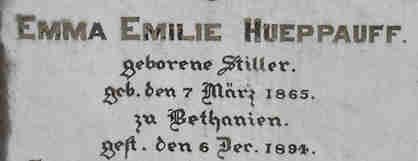 EMMA EMILIE HUEPPAUFF.
geborene Stiller.
geb. den 7 März 1865.
zu Bethanien.
gest. den 6 Dec. 1894.